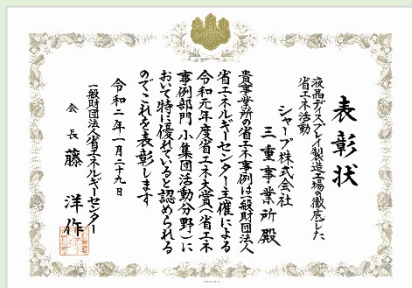 表彰状
液晶ディスプレイ製造工場の徹底した
省エネ活動
シャープ株式会社
三重事業所 殿
貴事業所の省エネ事例は一般財団法人
省エネルギーセンター主催による
令和元年度省エネ大賞(省エネ
事例部門 小集団活動分野)に
おいて特に優れていると認められる
のでこれを表彰します
令和二年一月二十九日
一般財団法人省エネルギーセンター
会長 藤 洋作